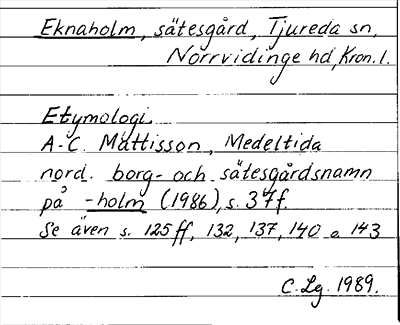 Eknaholm, sätesgård, Tjureda sn,
Norrvidinge hd, Kron. l.
Etymologi.
A-C. Mattisson, Medeltida
nord. borg- och sätesgårdsnamn
på -holm (1986), s. 37f.
Se även s. 125 ff, 132, 137, 140 o 143
C. Lg. 1989.